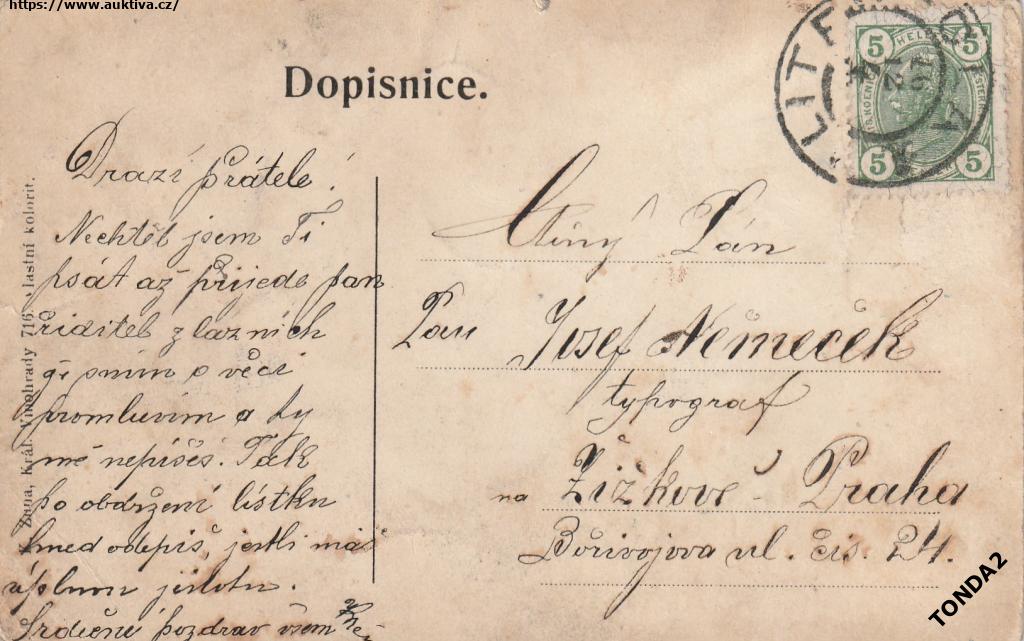 https://www.auktiva.cz/
LITE
5 HELLER 5
5 5
Dopisnice.
Drazí přátelé!
Nechtěl jsem Ti
psát až přijede pan
řiditel z lazních
že s ním o věci
promluvím a ty
mě nepíšeš. Tak
po obdržení lístku
hned odepiš, jestli máš
úplnou jistotu.
Srdečné pozdrav všem
Ctěný Pán
Pan Josef Němeček
typograf
na Žižkově - Praha
Bořivojova ul. čís. 24.
Zuna, Král. Vinohrady 716. vlastní kolorit.
TONDA2